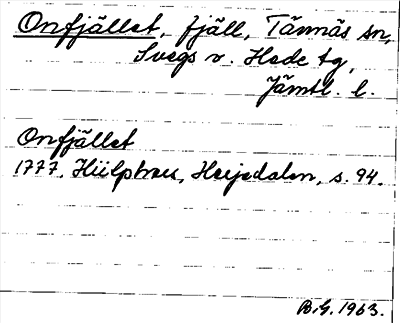 Onfjället, fjäll, Tännäs sn,
Svegs o. Hede tg,
Jämtl. l.
Onfjället
1777. Hülphers, Herjedalen, s. 94.
B.G. 1963.